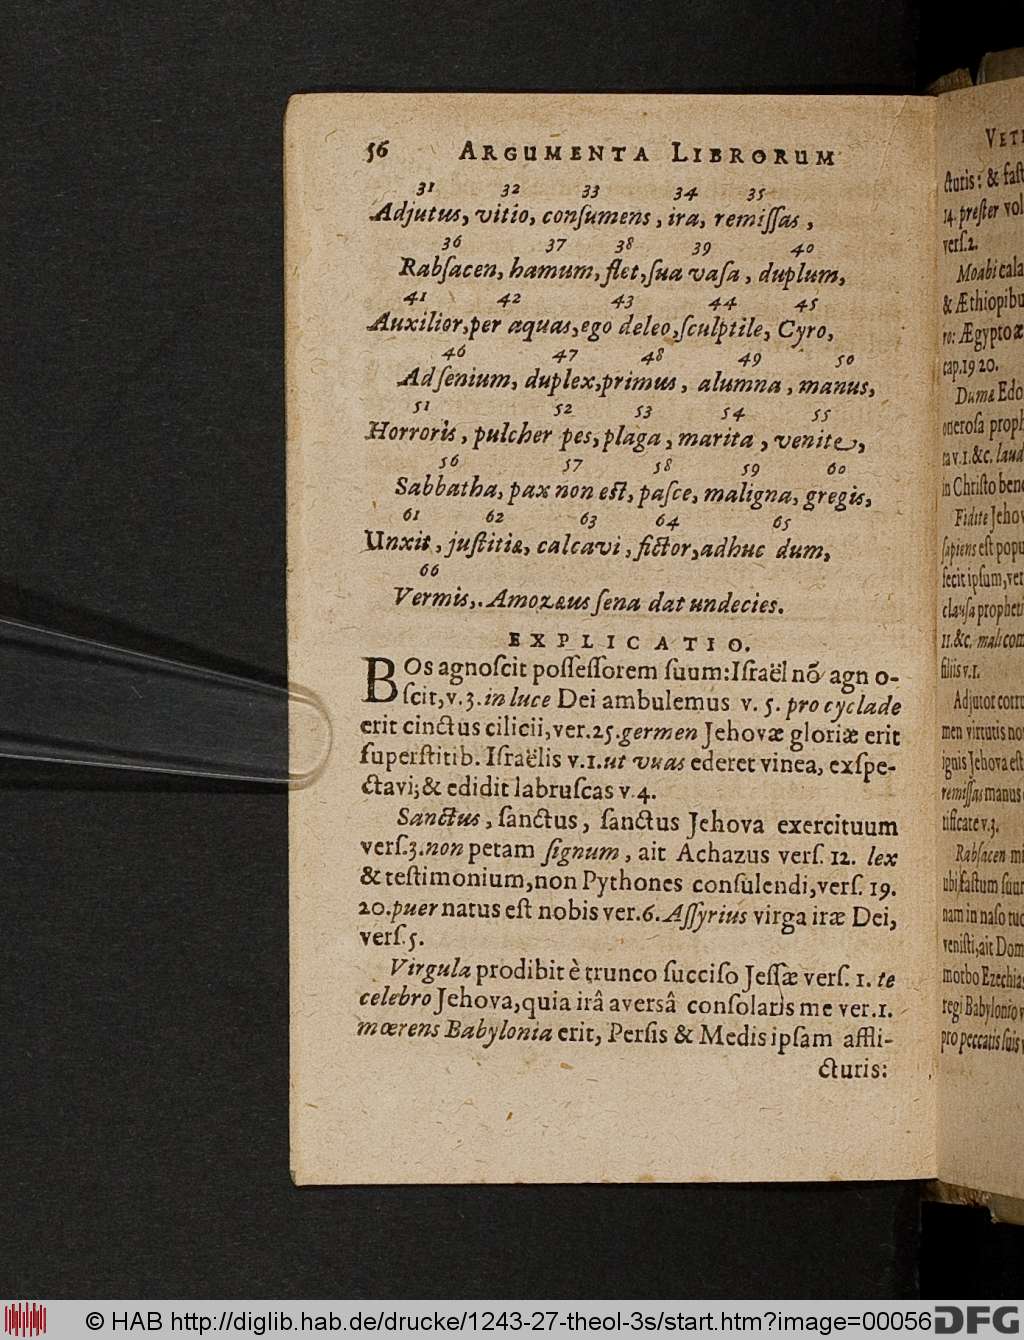 56 ARGUMENTA LIBRORUM
31 32 33 34 35
Adjutus, vitio, conſumens, ira, remiſſas,
36 37 38 39 40
Rabſacen, hamum, flet, ſua vaſa, duplum,
41 42 43 44 45
Auxilior, per aquas, ego deleo, ſculptile, Cyro,
46 47 48 49 50
Ad ſenium, duplex, primus, alumna, manus,
51 52 53 54 55
Horroris, pulcher pes, plaga, marita, venite,
56 57 58 59 60
Sabbatha, pax non est, paſce, maligna, gregis,
61 62 63 64 65
Unxit, juſtitiæ, calcavi, fictor, adhuc dum,
66
Vermis,. Amozæus ſena dat undecies.
EXPLICATIO.
BOs agnoſcit poſſeſſorem ſuum: Iſraël nõ agn o-
ſcit, v. 3. in luce Dei ambulemus v. 5. pro cyclade
erit cinctus cilicii, ver. 25. germen Jehovæ gloriæ erit
ſuperſtitib. Iſraëlis v. 1. ut vuas ederet vinea, exſpe-
ctavi; & edidit labruſcas v. 4.
Sanctus, ſanctus, ſanctus Jehova exercituum
verſ. 3. non petam ſignum, ait Achazus verſ. 12. lex
& teſtimonium, non Pythones conſulendi, verſ. 19.
20. puer natus eſt nobis ver. 6. Aſſyrius virga iræ Dei,
verſ. 5.
Virgula prodibit è trunco ſucciſo Jeſſæ verſ. 1. te
celebro Jehova, quia irâ aversâ conſolaris me ver. 1.
mœrens Babylonia erit, Perſis & Medis ipſam affli-
cturis:
VET
cturis: & faſt
14. preſter vol
verſ. 2.
Moabi cala
& Æthiopibu
ro: Ægypto æ
cap. 19 20.
Dumæ Edo
oneroſa proph
ta v. 1. &c. laud
in Chriſto bene
Fidite Jehov
ſapiens eſt popu
fecit ipſum, vet
clauſa propheti
11. &c. mali com
filiis v. 1.
Adjutor corru
men virtutis no
ignis Jehova eſt
remiſſas manus
tificate v. 3.
Rabſacen mi
ubi faſtum ſuum
nam in naſo tuo
veniſti, ait Dom
morbo Ezechias
regi Babylonio v
pro peccatis ſuis v
© HAB http://diglib.hab.de/drucke/1243-27-theol-3s/start.htm?image=00056 DFG